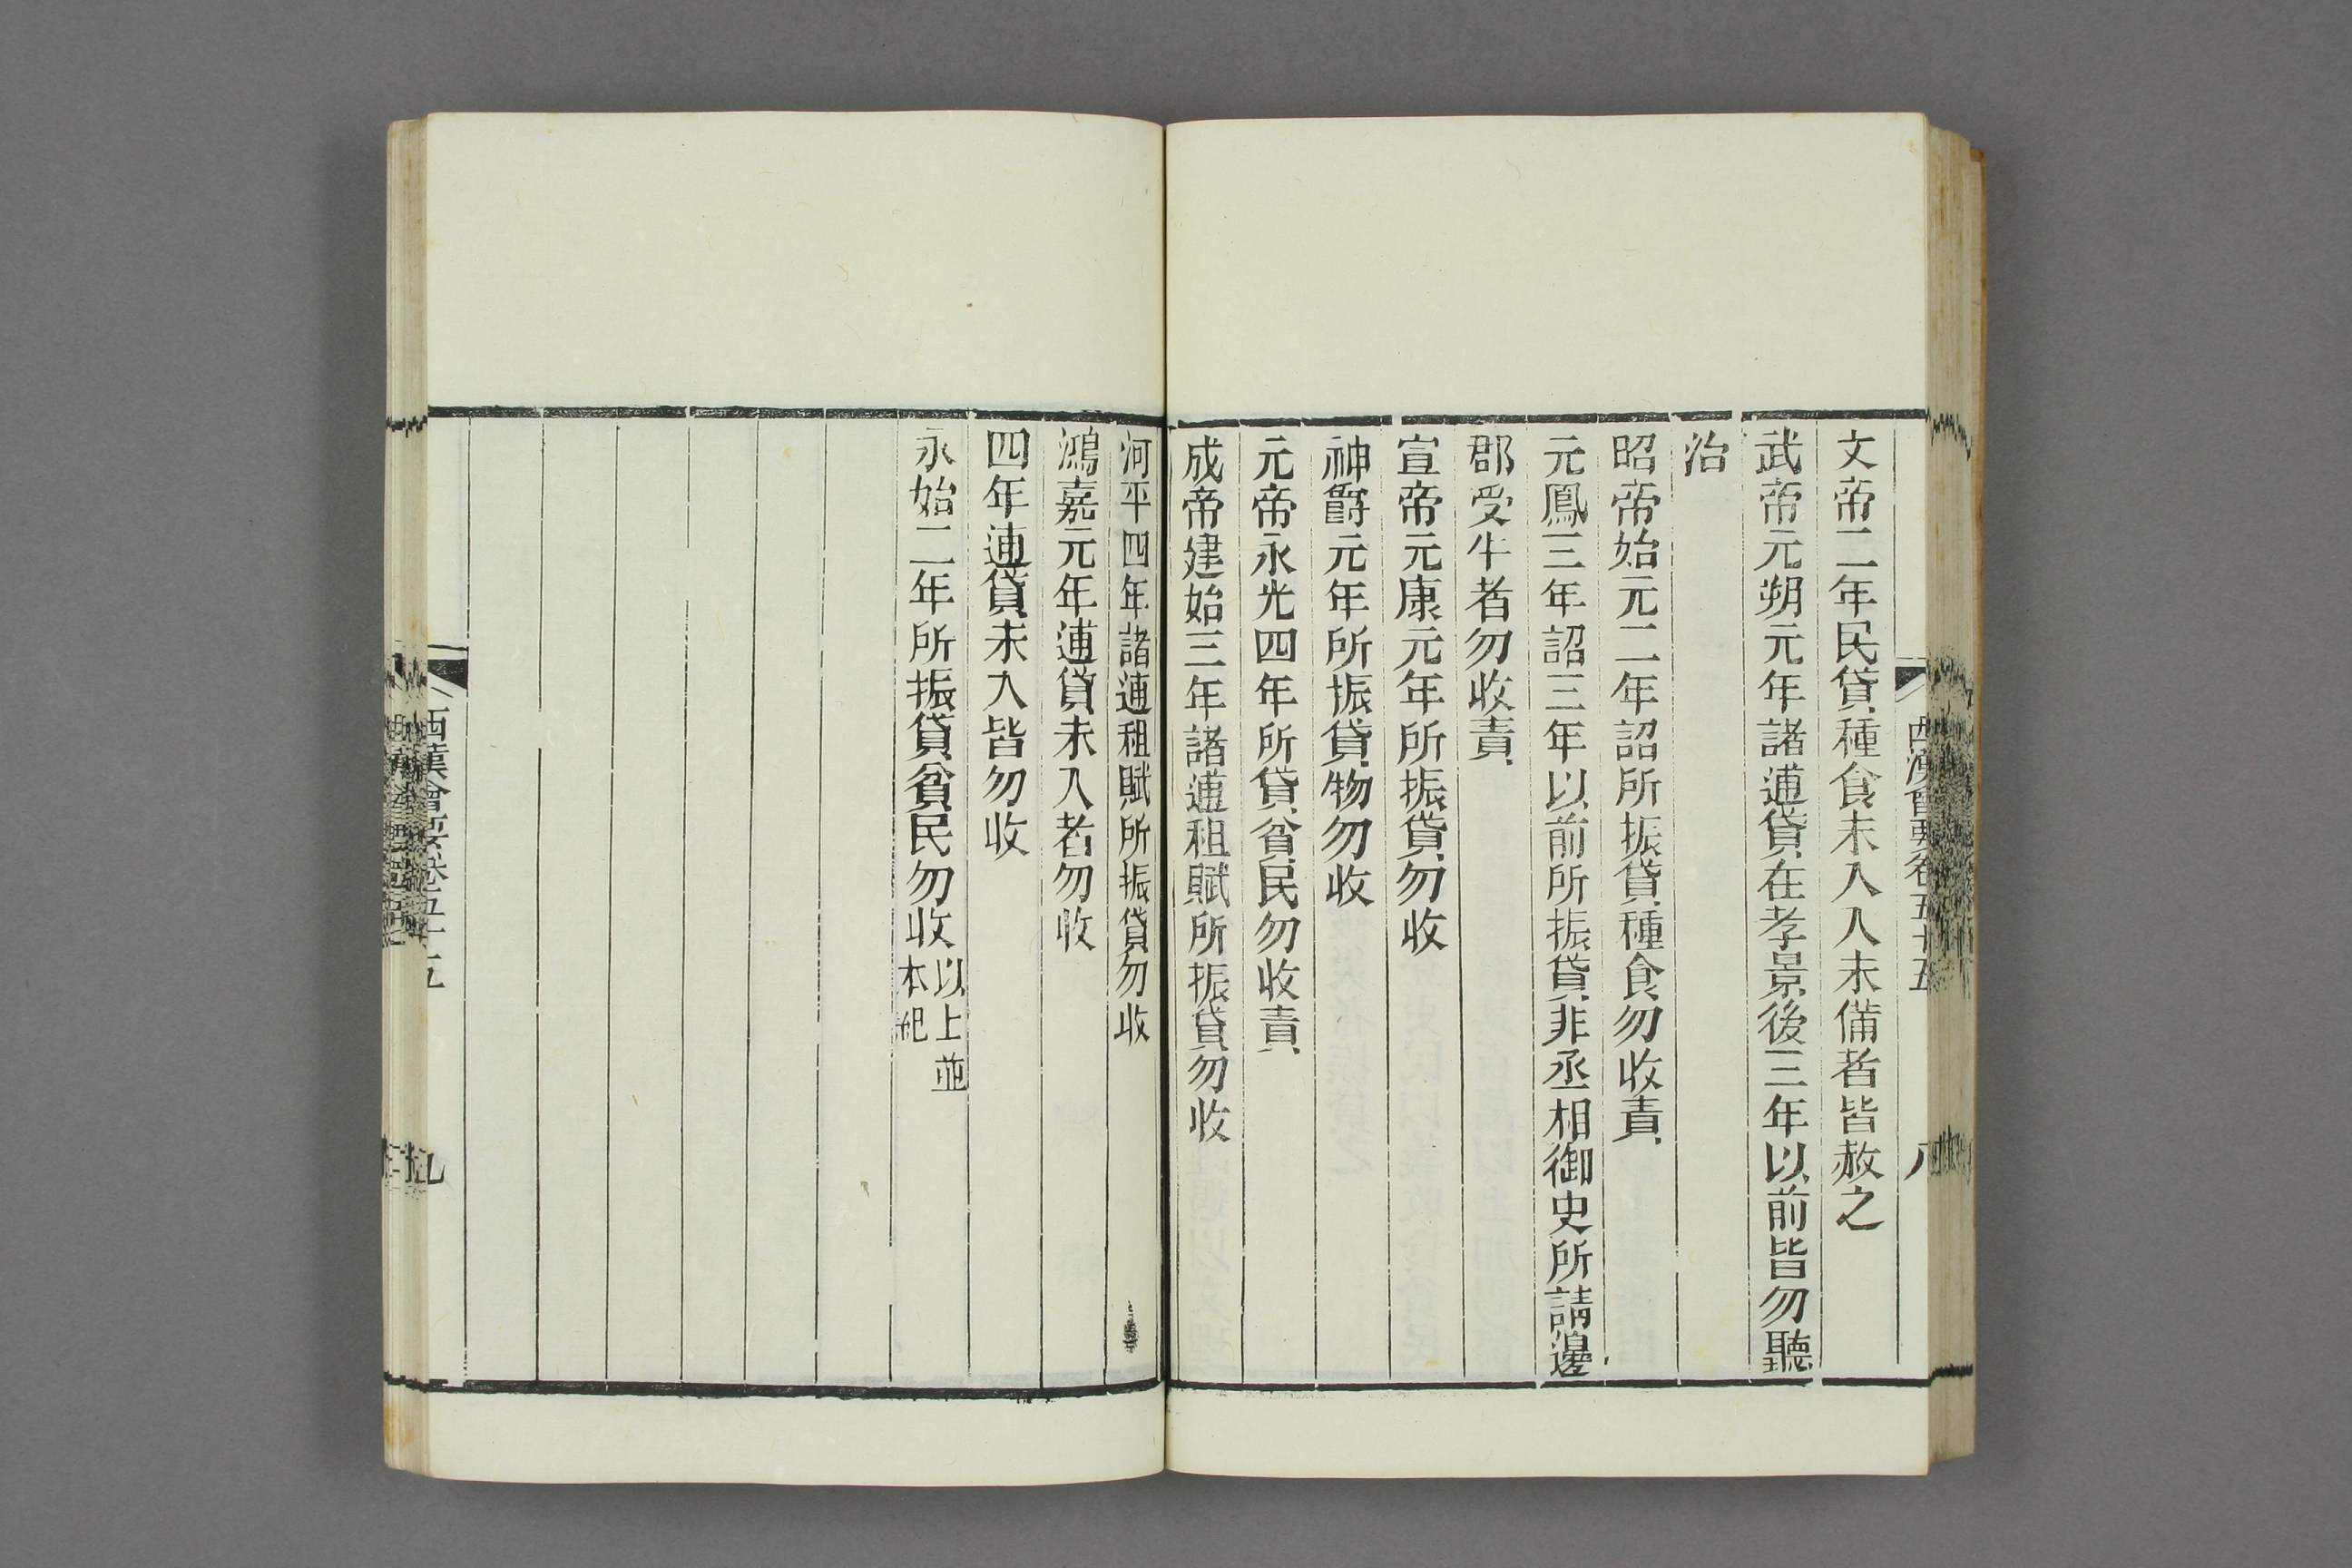 西漢會要卷五十五 八
文帝二年民貸種食未入入未備者皆赦之
武帝元朔元年諸逋貸在孝景後三年以前皆勿聽
治
昭帝始元二年詔所振貸種食勿收責
元鳳三年詔三年以前所振貸非丞相御史所請邊
郡受牛者勿收責
宣帝元康元年所振貸勿收
神爵元年所振貸物勿收
元帝永光四年所貸貧民勿收責
成帝建始三年諸逋租賦所振貸勿收
河平四年諸逋租賦所振貸勿收
鴻嘉元年逋貸未入者勿收
四年逋貸未入皆勿收
永始二年所振貸貧民勿收以上並本紀
西漢會要卷五十五 九